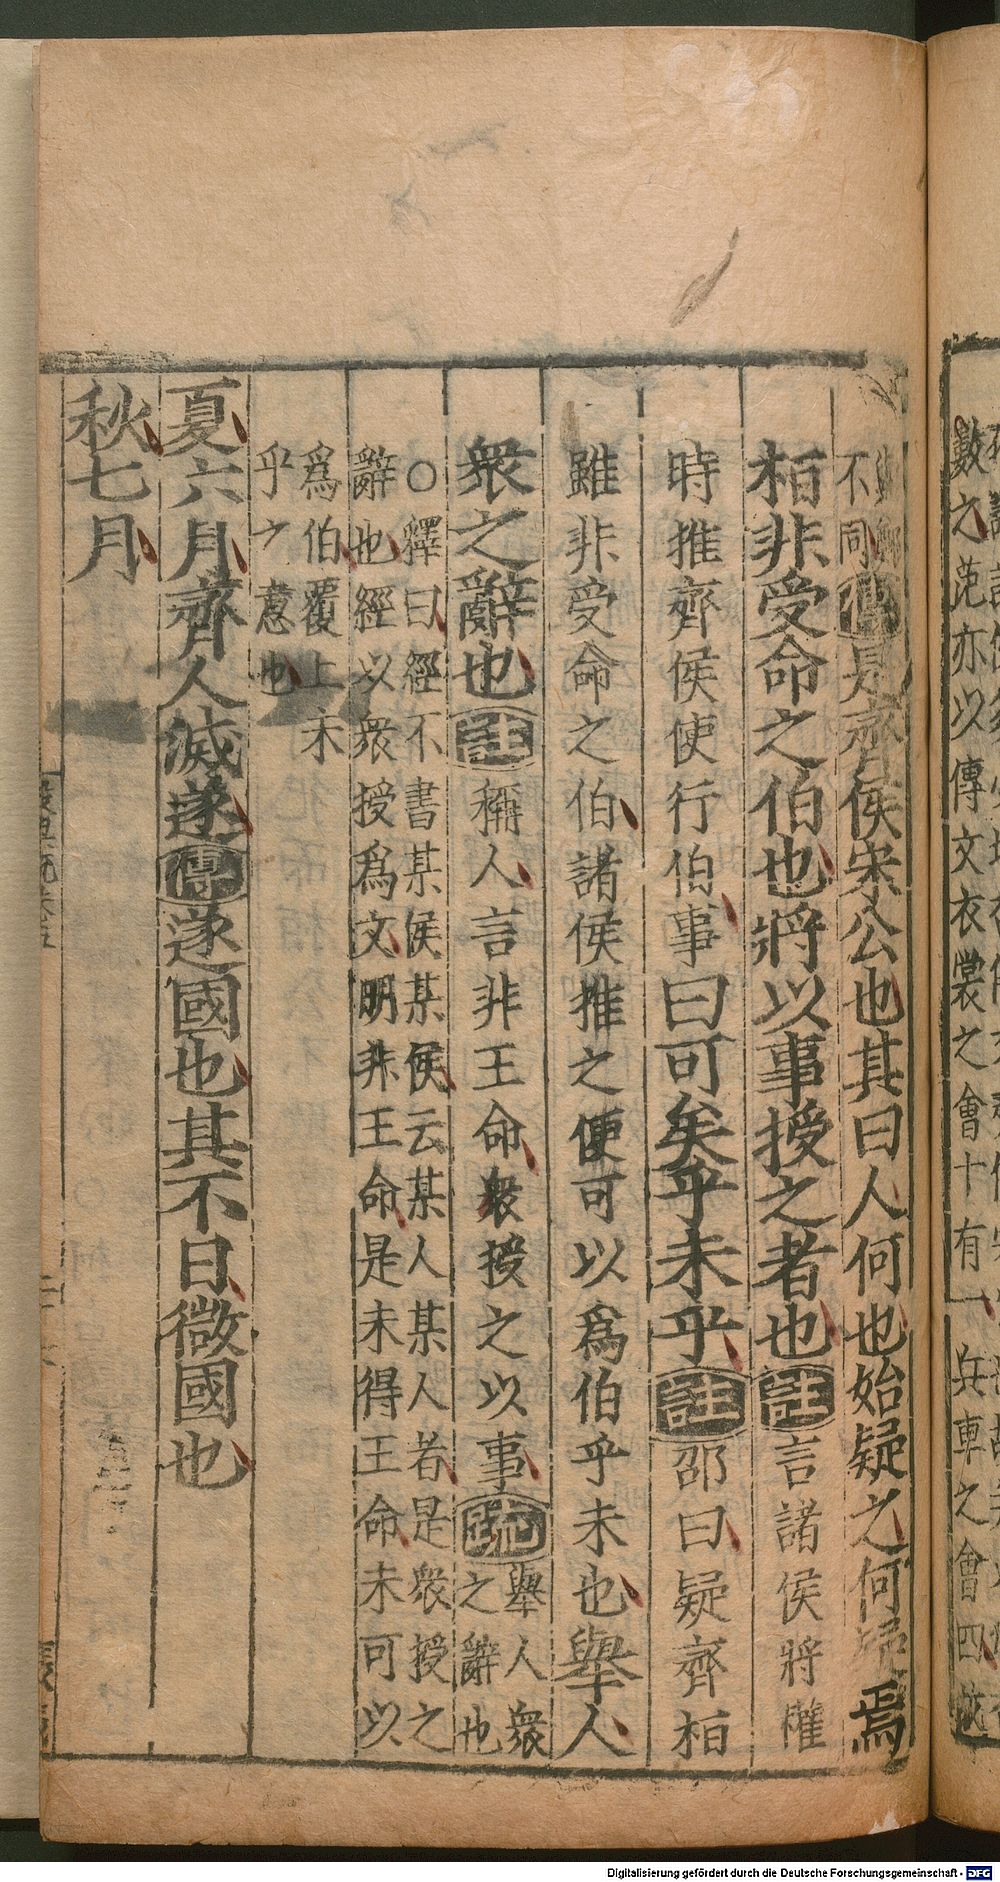 不同傳是齊侯宋公也其曰人何也始疑之何疑焉
桓非受命之伯也將以事授之者也註言諸侯將權
時推齊侯使行伯事曰可矣乎未乎註邵曰疑齊桓
雖非受命之伯諸侯推之便可以為伯乎未也舉人
眾之辭也註稱人言非王命眾授之以事疏舉人眾
之辭也
○釋曰經不書某侯某侯云某人某人者是眾授之
辭也經以眾授為文明非王命是未得王命未可以
為伯覆上未
乎之意也
夏六月齊人滅遂傳遂國也其不日微國也
秋七月
數之范亦以傳文衣裳之會十有一兵車之會四
Digitalisierung gefördert durch die Deutsche Forschungsgemeinschaft - DFG